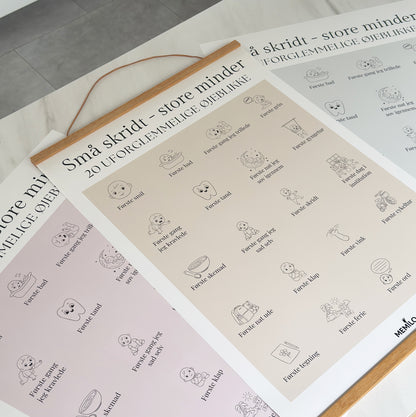 Små skridt - store minder
20 UFORGLEMMELIGE ØJEBLIKKE
Første smil
Første bad
Første gang jeg trillede
Første grin
Første gang
jeg kravlede
Første tand
Første nat jeg
sov igennem
Første
Første skemad
Første gang jeg
sad selv
Første skridt
Første dag i
institution
Første nat ude
Første klap
Første vink
Første cykeltur
Første tegning
Første ferie
Første ord
MEMILO
store minder
MMELIGE ØJEBLIKKE
Første bad
Første gang jeg
Første tand
Første gang
jeg kravlede
Første gang jeg
sad selv
Første klap
Små skridt - store minder
UFORGLEMMELIGE ØJEBLIKKE
Første bad
Første gang jeg trillede
tand
Første nat jeg
sov igennem